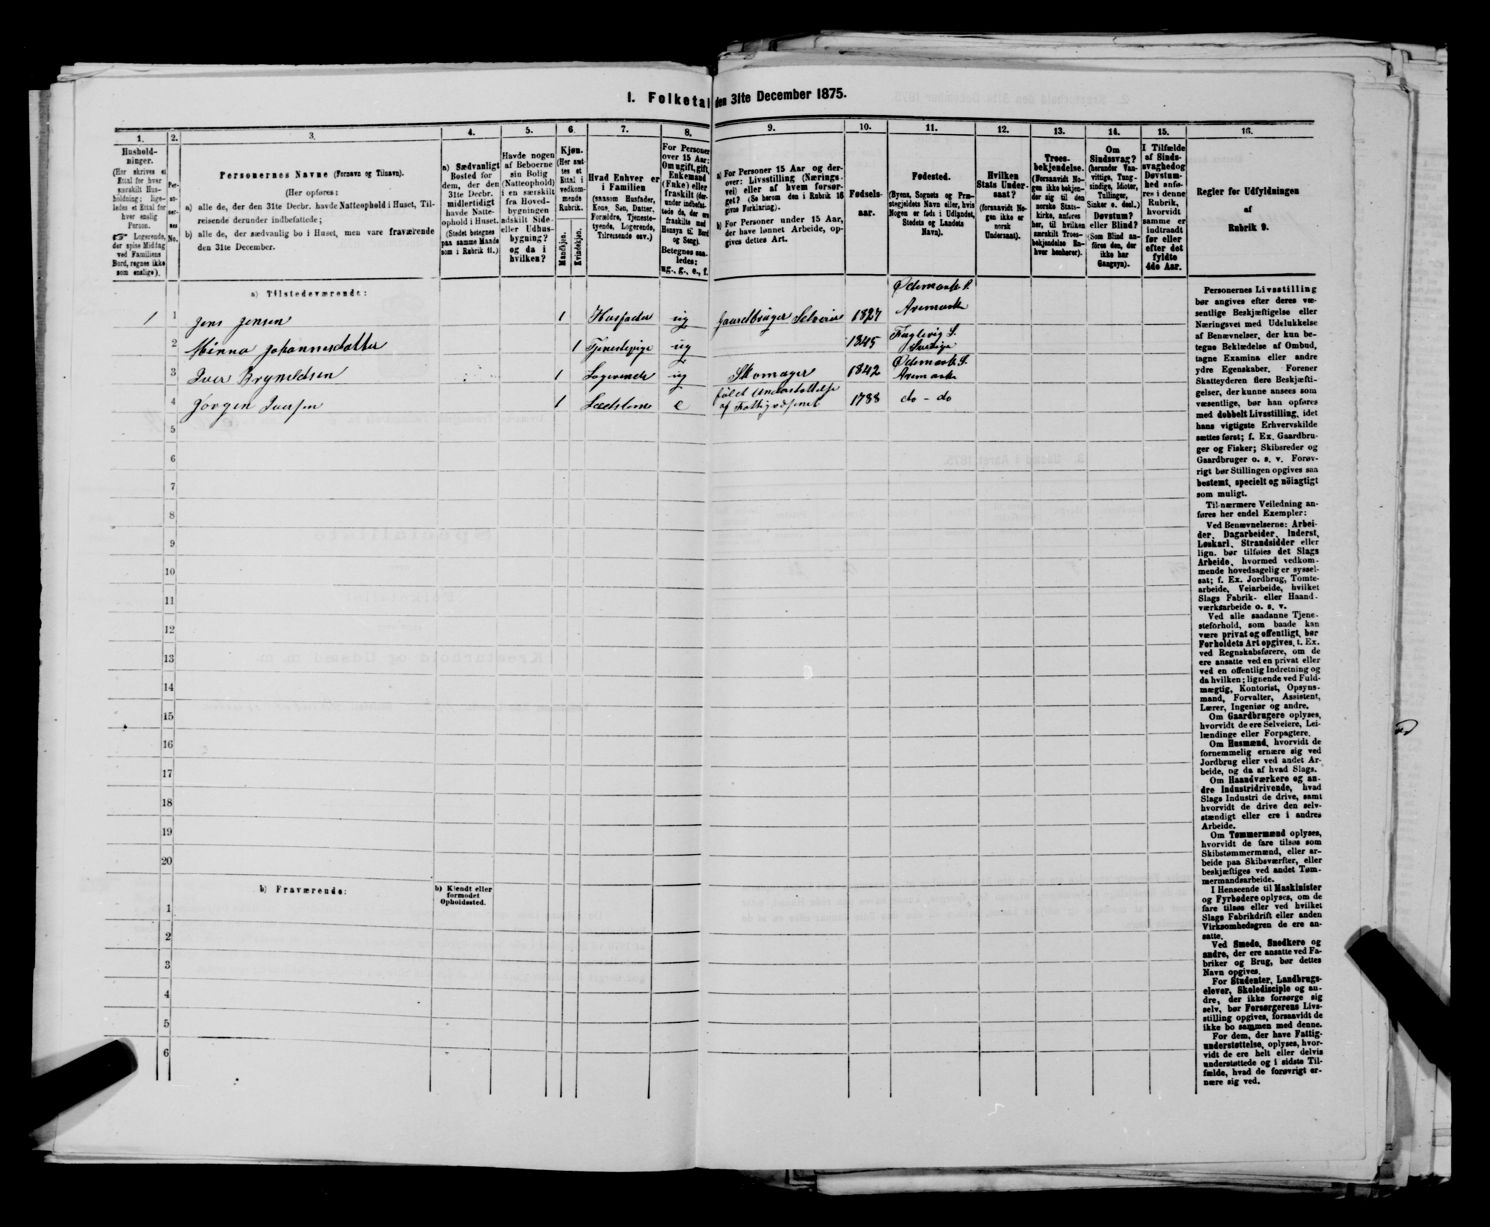 I. Folketal den 31te December 1875.
1. 2. 3. 4. 5. 6. 7. 8. 9. 10. 11. 12. 13. 14. 15. 16.
Hushold-
ninger.
(Her skrives et
Ettal for hver
særskilt Hus-
holdning; lige-
ledes et Ettal for
hver enslig
Person.
☞ Logerende,
der spise Middag
ved Familiens
Bord, regnes ikke
som enslige).
Per-
so-
ner-
nes
No.
Personernes Navne (Fornavn og Tilnavn).
(Her opføres:
a) alle de, der den 31te Decbr. havde Natteophold i Huset, Til-
reisende derunder indbefattede;
b) alle de, der sædvanlig bo i Huset, men vare fraværende
den 31te December.
a) Sædvanligt
Bosted for
dem, der den
31te Decbr.
midlertidigt
havde Natte-
ophold i Huset.
(Stedet betegnes
paa samme Maade
som i Rubrik 11.)
Havde nogen
af Beboerne
sin Bolig
(Natteophold)
i en særskilt
fra Hoved-
bygningen
adskilt Side-
eller Udhus-
bygning?
og da i
hvilken?
Kjøn.
(Her sæt-
tes et
Ettal i
vedkom-
mende
Rubrik.
Mandkjøn.
Kvindekjøn.
Hvad Enhver er
i Familien
(saasom Husfader,
Kone, Søn, Datter,
Forældre, Tjeneste-
tyende, Logerende,
Tilreisende osv.)
For Personer
over 15 Aar:
Om ugift, gift,
Enkemand
(Enke) eller
fraskilt (der-
under indbefat-
tede de, der ere
fraskilte med
Hensyn til Bord
og Seng).
Betegnes saa-
ledes:
ug., g., e., f.
a) For Personer 15 Aar og der-
over: Livsstilling (Nærings-
vei) eller af hvem forsør-
get? (Se herom den i Rubrik 16
givne Forklaring).
b) For Personer under 15 Aar,
der have lønnet Arbeide, op-
gives dettes Art.
Fødsels-
aar.
Fødested.
(Byens, Sognets og Præ-
stegjeldets Navn eller, hvis
Nogen er født i Udlandet,
Stedets og Landets
Navn).
Hvilken
Stats Under-
saat?
(forsaavidt No-
gen ikke er
norsk
Undersaat).
Troes-
bekjendelse.
(Forsaavidt No-
gen ikke bekjen-
der sig til den
norske Stats-
kirke, anføres
her, til hvilken
særskilt Troes-
bekjendelse En-
hver henhører).
Om
Sindssvag?
(herunder Van-
vittige, Tung-
sindige, Idioter,
Tullinger,
Sinker o. desl.)
Døvstum?
eller Blind?
(Som Blind an-
føres den, der
ikke har
Gangsyn).
I Tilfælde
af Sinds-
svaghed og
Døvstum-
hed anfø-
res i denne
Rubrik,
hvorvidt
samme er
indtraadt
før eller
efter det
fyldte
4de Aar.
Regler for Udfyldningen
af
Rubrik 9.
a) Tilstedeværende:
1 1 Jens Jensen 1 Husfader ug Gaardbruger Selveier 1827 Ødemark S. Aremark
2 Minna Johannesdatter 1 Tjenestepige ug 1845 S. Sverige
3 Iver Bryneldsen 1 Logerende ug Skomager 1842 Ødemark S. Aremark
4 Jørgen Iversen 1 e fuld Understøttelse af Fattigvæsenet 1788 do - do
5
6
7
8
9
10
11
12
13
14
15
16
17
18
19
20
b) Fraværende:
b) Kjendt eller
formodet
Opholdssted.
1
2
3
4
5
6
Personernes Livsstilling
bør angives efter deres væ-
sentlige Beskjæftigelse eller
Næringsvei med Udelukkelse
af Benævnelser, der kun be-
tegne Beklædelse af Ombud,
tagne Examina eller andre
ydre Egenskaber. Forener
Skatteyderen flere Beskjæfti-
gelser, der kunne ansees som
væsentlige, bør han opføres
med dobbelt Livsstilling, idet
hans vigtigste Erhvervskilde
sættes først; f. Ex. Gaardbru-
ger og Fisker; Skibsreder og
Gaardbruger o. s. v. Forøv-
rigt bør Stillingen opgives saa
bestemt, specielt og nöiagtigt
som muligt.
Til nærmere Veiledning an-
føres her endel Exempler:
Ved Benævnelserne: Arbei-
der, Dagarbeider, Inderst,
Løskarl, Strandsidder eller
lign. bør tilføies det Slags
Arbeide, hvormed vedkom-
mende hovedsagelig er syssel-
sat; f. Ex. Jordbrug, Tomte-
arbeide, Veiarbeide, hvilket
Slags Fabrik- eller Haand-
værksarbeide o. s. v.
Ved alle saadanne Tjene-
steforhold, som baade kan
være privat og offentligt, bør
Forholdets Art opgives, t. Ex.
ved Regnskabsførere, om de
ere ansatte ved en privat eller
ved en offentlig Indretning og
da hvilken; lignende ved Fuld-
mægtig, Kontorist, Opsyns-
mand, Forvalter, Assistent,
Lærer, Ingeniør og andre.
Om Gaardbrugere oplyses,
hvorvidt de ere Selveiere, Lei-
lændinge eller Forpagtere.
Om Husmænd, hvorvidt de
fornemmelig ernære sig ved
Jordbrug eller ved andet Ar-
beide, og da af hvad Slags.
Om Haandværkere og an-
dre Industridrivende, hvad
Slags Industri de drive, samt
hvorvidt de drive den selv-
stændigt eller ere i andres
Arbeide.
Om Tømmermænd oplyses,
hvorvidt de fare tilsøs som
Skibstømmermænd, eller ar-
beide paa Skibsværfter, eller
beskjæftiges ved andet Tøm-
mermandsarbeide.
I Henseende til Maskinister
og Fyrbødere oplyses, om de
fare tilsøs eller ved hvilket
Slags Fabrikdrift eller anden
Virksomhedsgren de ere an-
satte.
Ved Smede, Snedkere og
andre, der ere ansatte ved Fa-
briker og Brug, bør dettes
Navn opgives.
For Studenter, Landbrugs-
elever, Skoledisciple og an-
dre, der ikke forsørge sig
selv, bør Forsørgerens Livs-
stilling opgives, forsaavidt de
ikke bo sammen med denne.
For dem, der have Fattig-
understøttelse, oplyses, hvor-
vidt de ere helt eller delvis
understøttede og i sidste Til-
fælde, hvad de forøvrigt er-
nære sig ved.